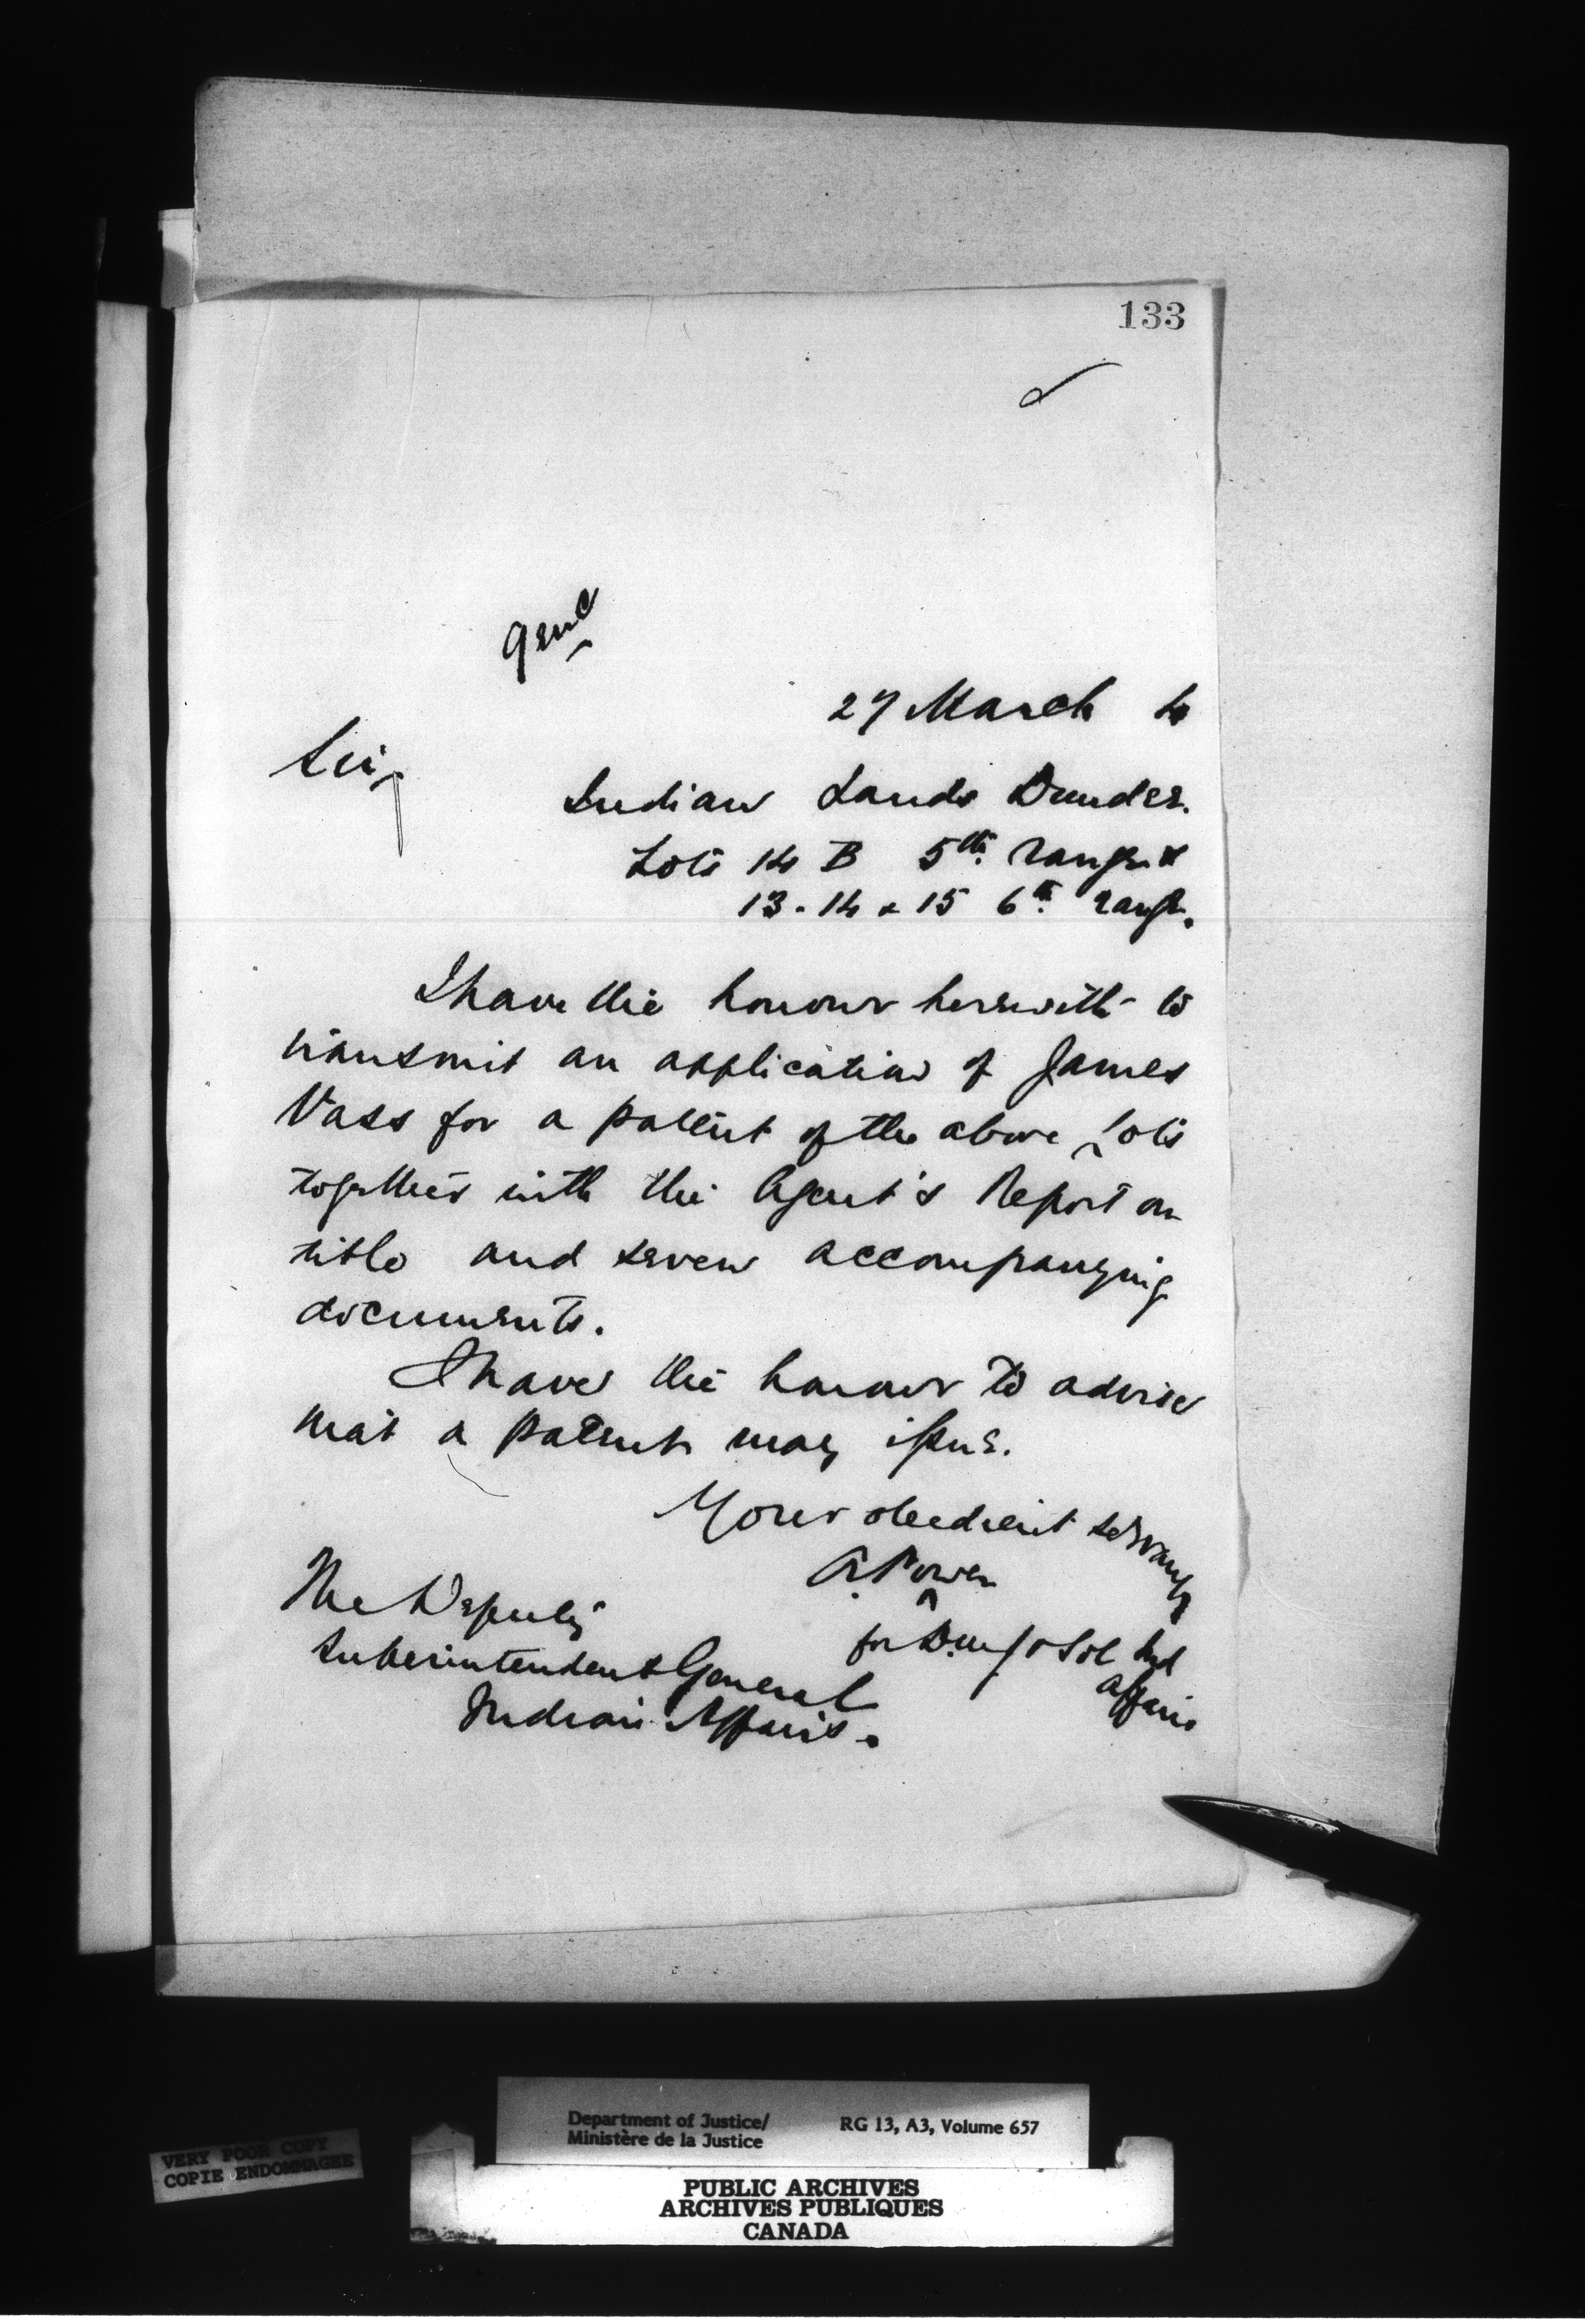 133
27 March 4
Sir,
Indian Lands Dundee.
Lots 14 B 5th range &
13-14 & 15 6th range.
I have the honour herewith to
transmit an application of James
Vass for a patent of the above Lots
together with the Agent's Report on
title and seven accompanying
documents.
I have the honour to advise
that a patent may issue.
Your obedient servant
A. Power
for D.M.J. & Sol Ind
Affairs
The Deputy
Superintendent General
Indian Affairs.
VERY POOR COPY
COPIE ENDOMMAGEE
Department of Justice/
Ministère de la Justice
RG 13, A3, Volume 657
PUBLIC ARCHIVES
ARCHIVES PUBLIQUES
CANADA